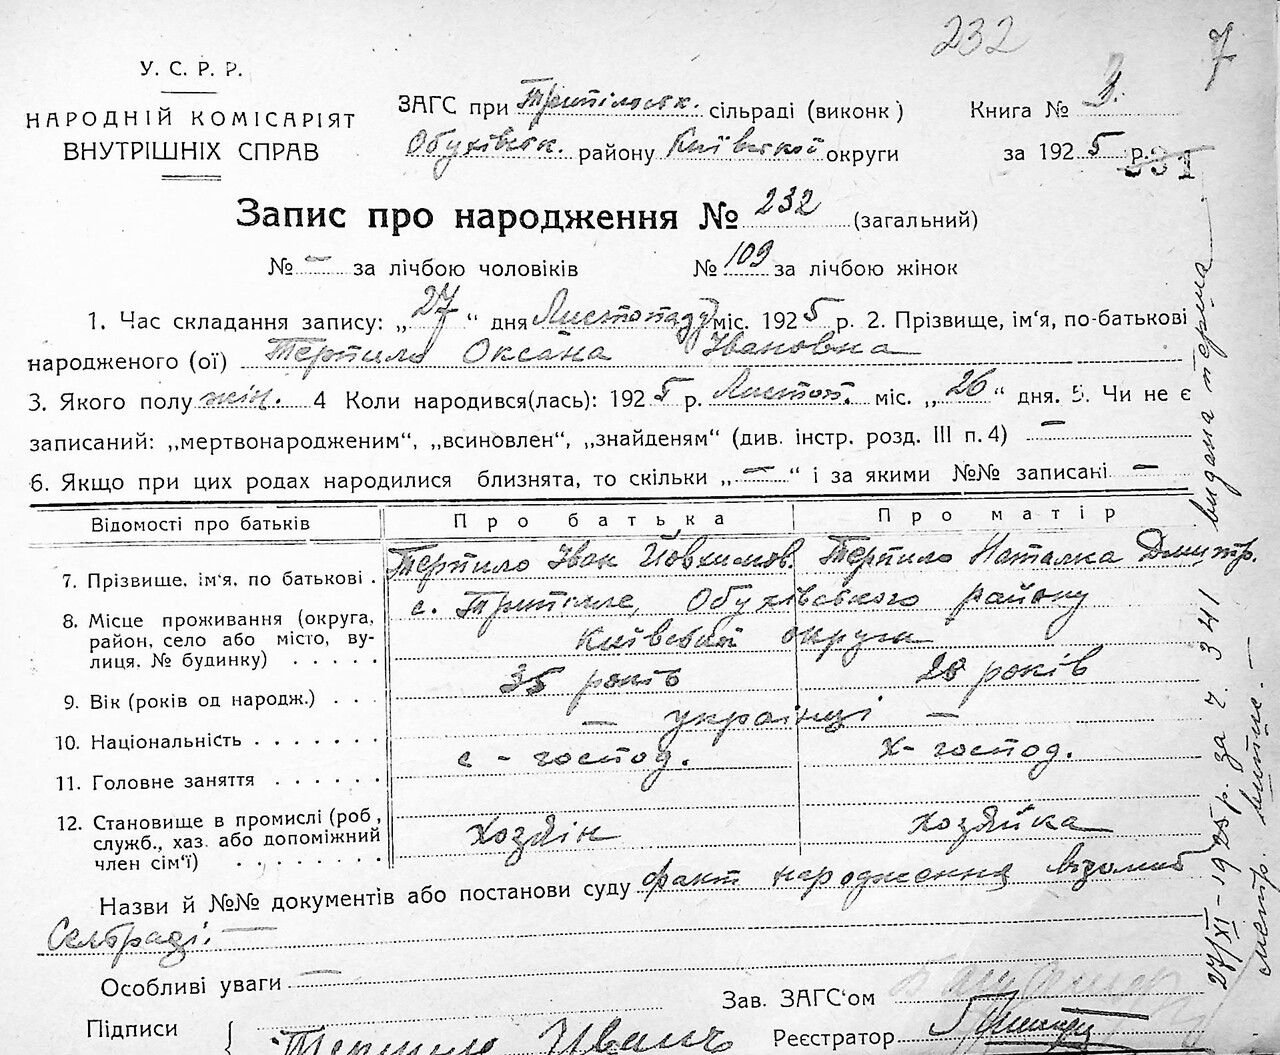 232
7
У. С. Р. Р.
НАРОДНІЙ КОМІСАРІЯТ
ВНУТРІШНІХ СПРАВ
ЗАГС при Трипільськ. сільраді (виконк)
Обухівськ. району Київської округи
Книга № 3.
за 1925 р.
331
Запис про народження № 232 (загальний)
№ — за лічбою чоловіків № 109 за лічбою жінок
1. Час складання запису: „27“ дня Листопаду міс. 1925 р. 2. Прізвище, ім'я, по-батькові
народженого (ої) Терпило Оксана Івановна
3. Якого полу жін. 4 Коли народився(лась): 1925 р. Листоп. міс. „26“ дня. 5. Чи не є
записаний: „мертвонародженим“, „всиновлен“, „знайденям“ (див. інстр. розд. III п. 4) —
6. Якщо при цих родах народилися близнята, то скільки „—“ і за якими №№ записані —
Відомості про батьків Про батька Про матір
7. Прізвище, ім'я, по батькові . Терпило Іван Йовхимов. Терпило Наталка Дмитр.
8. Місце проживання (округа, район, село або місто, вулиця, № будинку) . . . . . с. Трипілле, Обухівського району
Київської округи
9. Вік (років од народж.) . . . 35 років 28 років
10. Національність . . . . . . . — українці —
11. Головне заняття . . . . . . . с-господ. х-господ.
12. Становище в промислі (роб., служб., хаз. або допоміжний член сім'ї) . . . . . . . Хозяін Хозяйка
Назви й №№ документів або постанови суду факт народження відомий
Сельраді. —
Особливі уваги —
Зав. ЗАГС'ом
Підписи { Терпило Іван
Реєстратор
27/XI-1925 р. за ч. 341 видана перша
метр. випис —